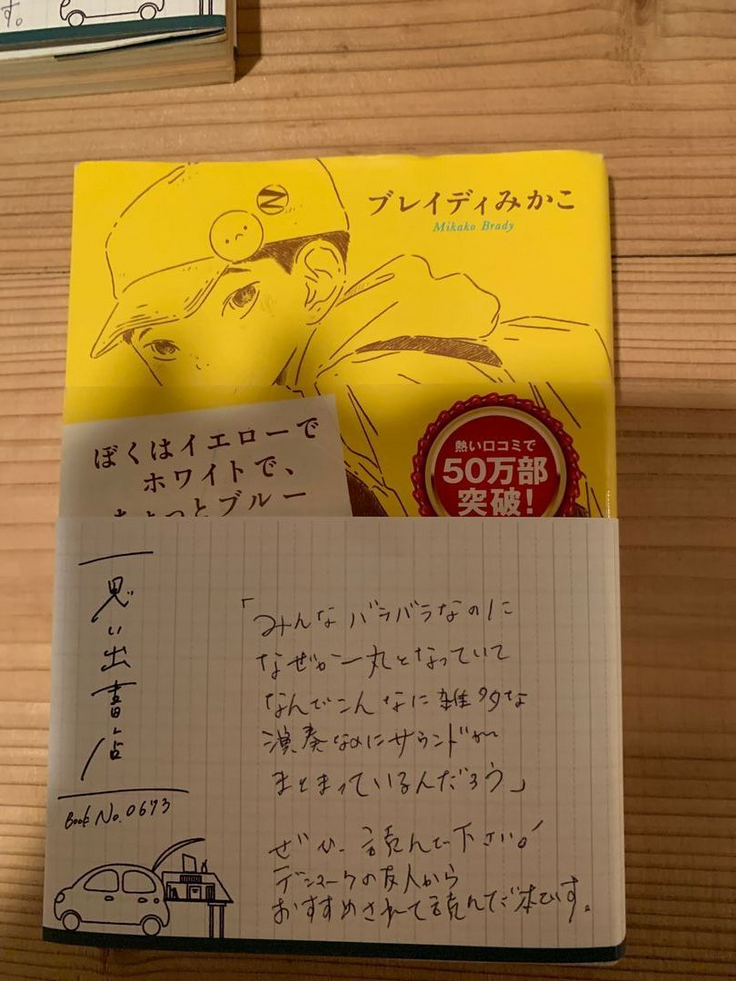 す。
ブレイディみかこ
Mikako Brady
ぼくはイエローで
ホワイトで、
ちょっとブルー
熱い口コミで
50万部
突破!
思い出書店
Book No.0673
「みんなバラバラなのに
なぜか一丸となっていて
なんでこんなに雑多な
演奏なのにサウンドが
まとまっているんだろう」
ぜひ読んで下さい。
デンマークの友人から
おすすめされて読んだ本です。